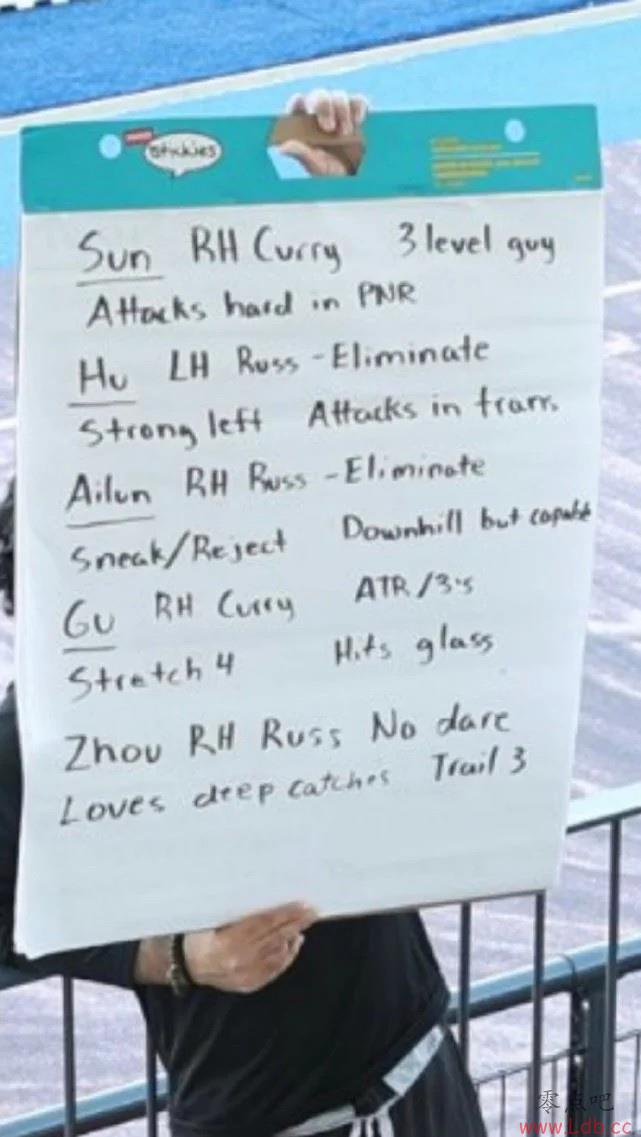 stickies
Sun RH Curry 3 level guy
Attacks hard in PNR
Hu LH Russ - Eliminate
Strong left Attacks in trans.
Ailun RH Russ - Eliminate
Sneak/Reject Downhill but capable
Gu RH Curry ATR/3's
Stretch 4 Hits glass
Zhou RH Russ No dare
Loves deep catches Trail 3
零点吧
www.Ldb.cc